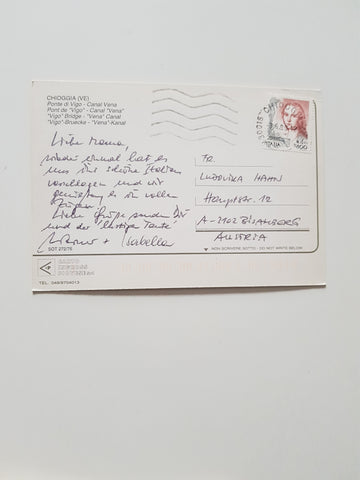 CHIOGGIA (VE)
Ponte di Vigo - Canal Vena
Pont de "Vigo" - Canal "Vena"
"Vigo" Bridge - "Vena" Canal
"Vigo"-Bruecke - "Vena"-Kanal
Liebe Mama,
wieder einmal hat es
uns ins schöne Italien
verschlagen und wir
genießen es in vollen
Zügen.
Liebe Grüße senden Dir
und der "lustigen Tante"
+ Isabella
SOT 272/75
TEL. 049/8704013
FR.
LUDOVIKA HAHN
HAUPTSTR. 12
A-2102 BISAMBERG
AUSTRIA
NON SCRIVERE SOTTO - DO NOT WRITE BELOW
ITALIA